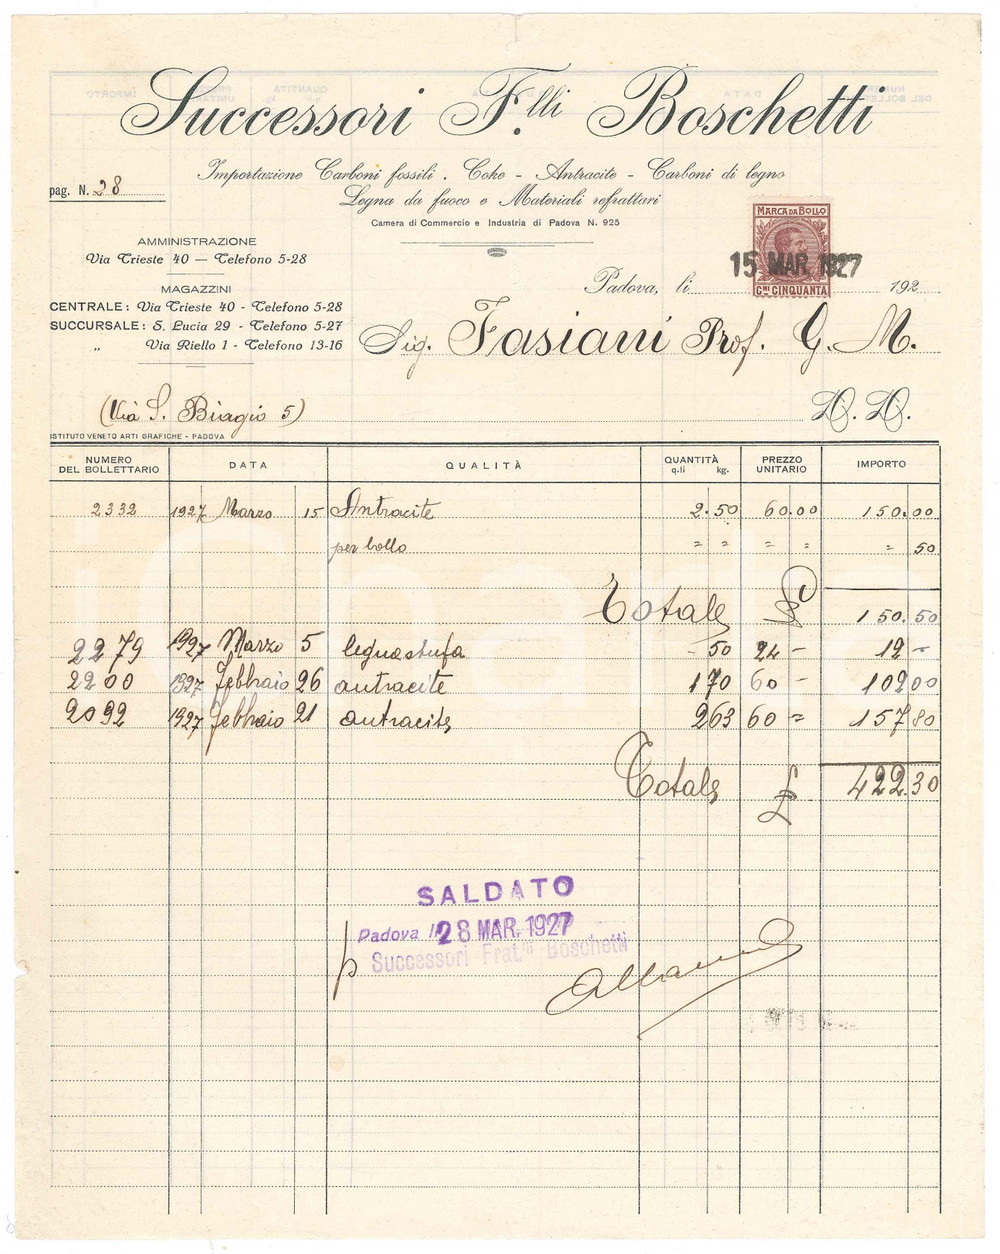 Successori F.lli Boschetti
Importazione Carboni fossili . Coke - Antracite - Carboni di legno
Legna da fuoco e Materiali refrattari
Camera di Commercio e Industria di Padova N. 925
pag. N. 28
AMMINISTRAZIONE
Via Trieste 40 — Telefono 5-28
MAGAZZINI
CENTRALE: Via Trieste 40 - Telefono 5-28
SUCCURSALE: S. Lucia 29 - Telefono 5-27
„ Via Riello 1 - Telefono 13-16
MARCA DA BOLLO
15 MAR 1927
CMI CINQUANTA
Padova, li 192
Sig. Fasiani Prof. G. M.
(Via S. Biagio 5) D. D.
ISTITUTO VENETO ARTI GRAFICHE - PADOVA
NUMERO DEL BOLLETTARIO DATA QUALITÀ QUANTITÀ q.li kg. PREZZO UNITARIO IMPORTO
2332 1927 Marzo 15 Antracite 2.50 60.00 150.00
per bollo " " " " " 50
Totale £ 150.50
2279 1927 Marzo 5 legna stufa - 50 24 - 12 -
2200 1927 Febbraio 26 antracite 1 70 60 - 102 00
2092 1927 Febbraio 21 antracite 2 63 60 = 157 80
Totale £ 422.30
SALDATO
Padova li 28 MAR. 1927
p Successori Frat.lli Boschetti